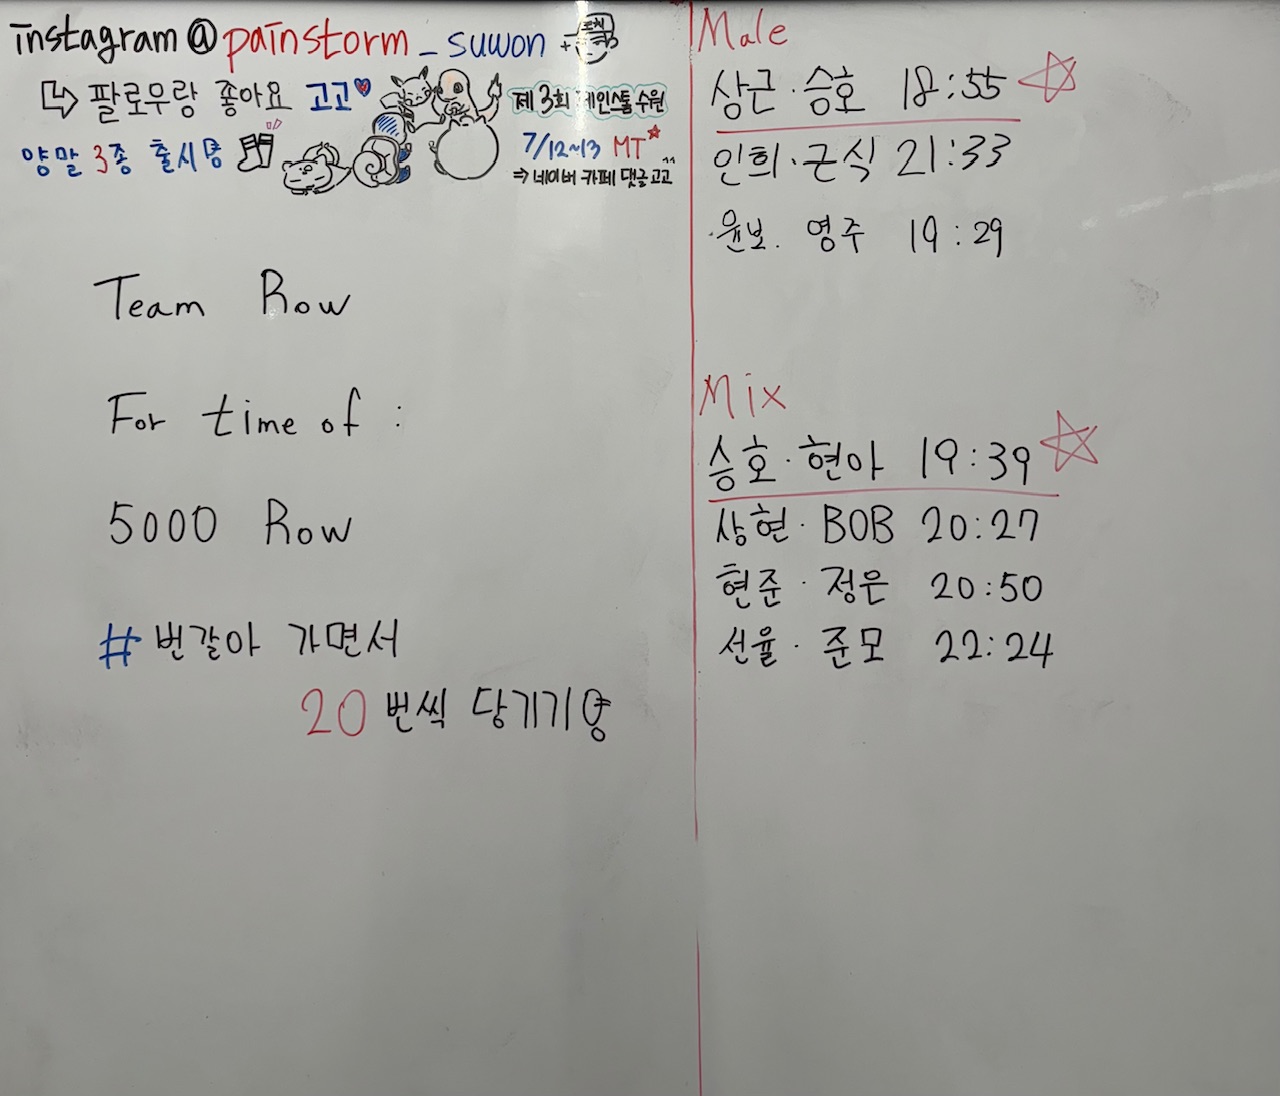 instagram@painstorm_suwon
팔로우랑 좋아요 고고
양말 3종 출시용
제3회 페인스톰 수원
7/12~13 MT
⇒ 네이버 카페 댓글 고고
Team Row
For time of :
5000 Row
# 번갈아 가면서
20 번씩 당기기용
Male
상근 · 승호 18:55
인희 · 근식 21:33
윤보 . 영주 19:29
Mix
승호 · 현아 19:39
상현 · BOB 20:27
현준 · 정은 20:50
선율 · 준모 22:24